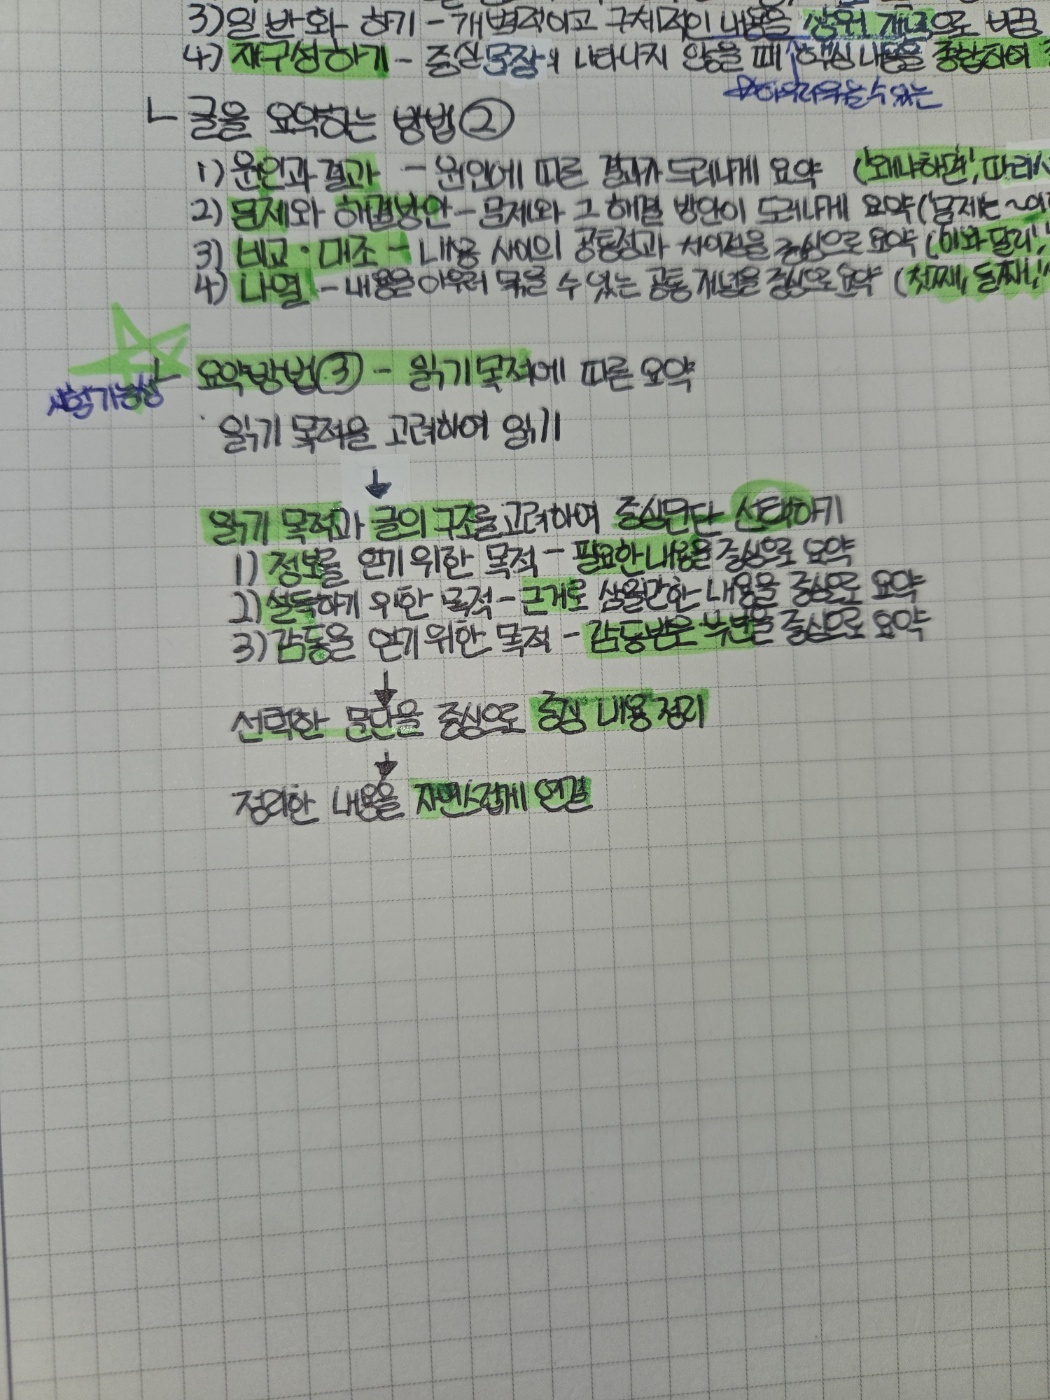 3) 일반화 하기 - 개별적이고 구체적인 내용을 상위 개념으로 바꿈
4) 재구성하기 - 중심문장이 나타나지 않을 때 핵심 내용을 종합하여
아우를 수 있는
글을 요약하는 방법②
1) 원인과 결과 - 원인에 따른 결과가 드러나게 요약 ('왜냐하면', 따라서
2) 문제와 해결방안 - 문제와 그 해결 방안이 드러나게 요약 ('문제는 ~이
3) 비교·대조 - 내용 사이의 공통점과 차이점을 중심으로 요약 ('이와 달리',
4) 나열 - 내용을 아우러 묶을 수 있는 공통 개념을 중심으로 요약 (첫째, 둘째,
요약방법③ - 읽기 목적에 따른 요약
시험가능성
읽기 목적을 고려하여 읽기
↓
읽기 목적과 글의 구조를 고려하여 중심문단 선택하기
1) 정보를 얻기 위한 목적 - 필요한 내용을 중심으로 요약
2) 설득하기 위한 목적 - 근거로 삼을만한 내용을 중심으로 요약
3) 감동을 얻기 위한 목적 - 감동받은 부분을 중심으로 요약
↓
선택한 문단을 중심으로 중심 내용 정리
↓
정리한 내용을 자연스럽게 연결